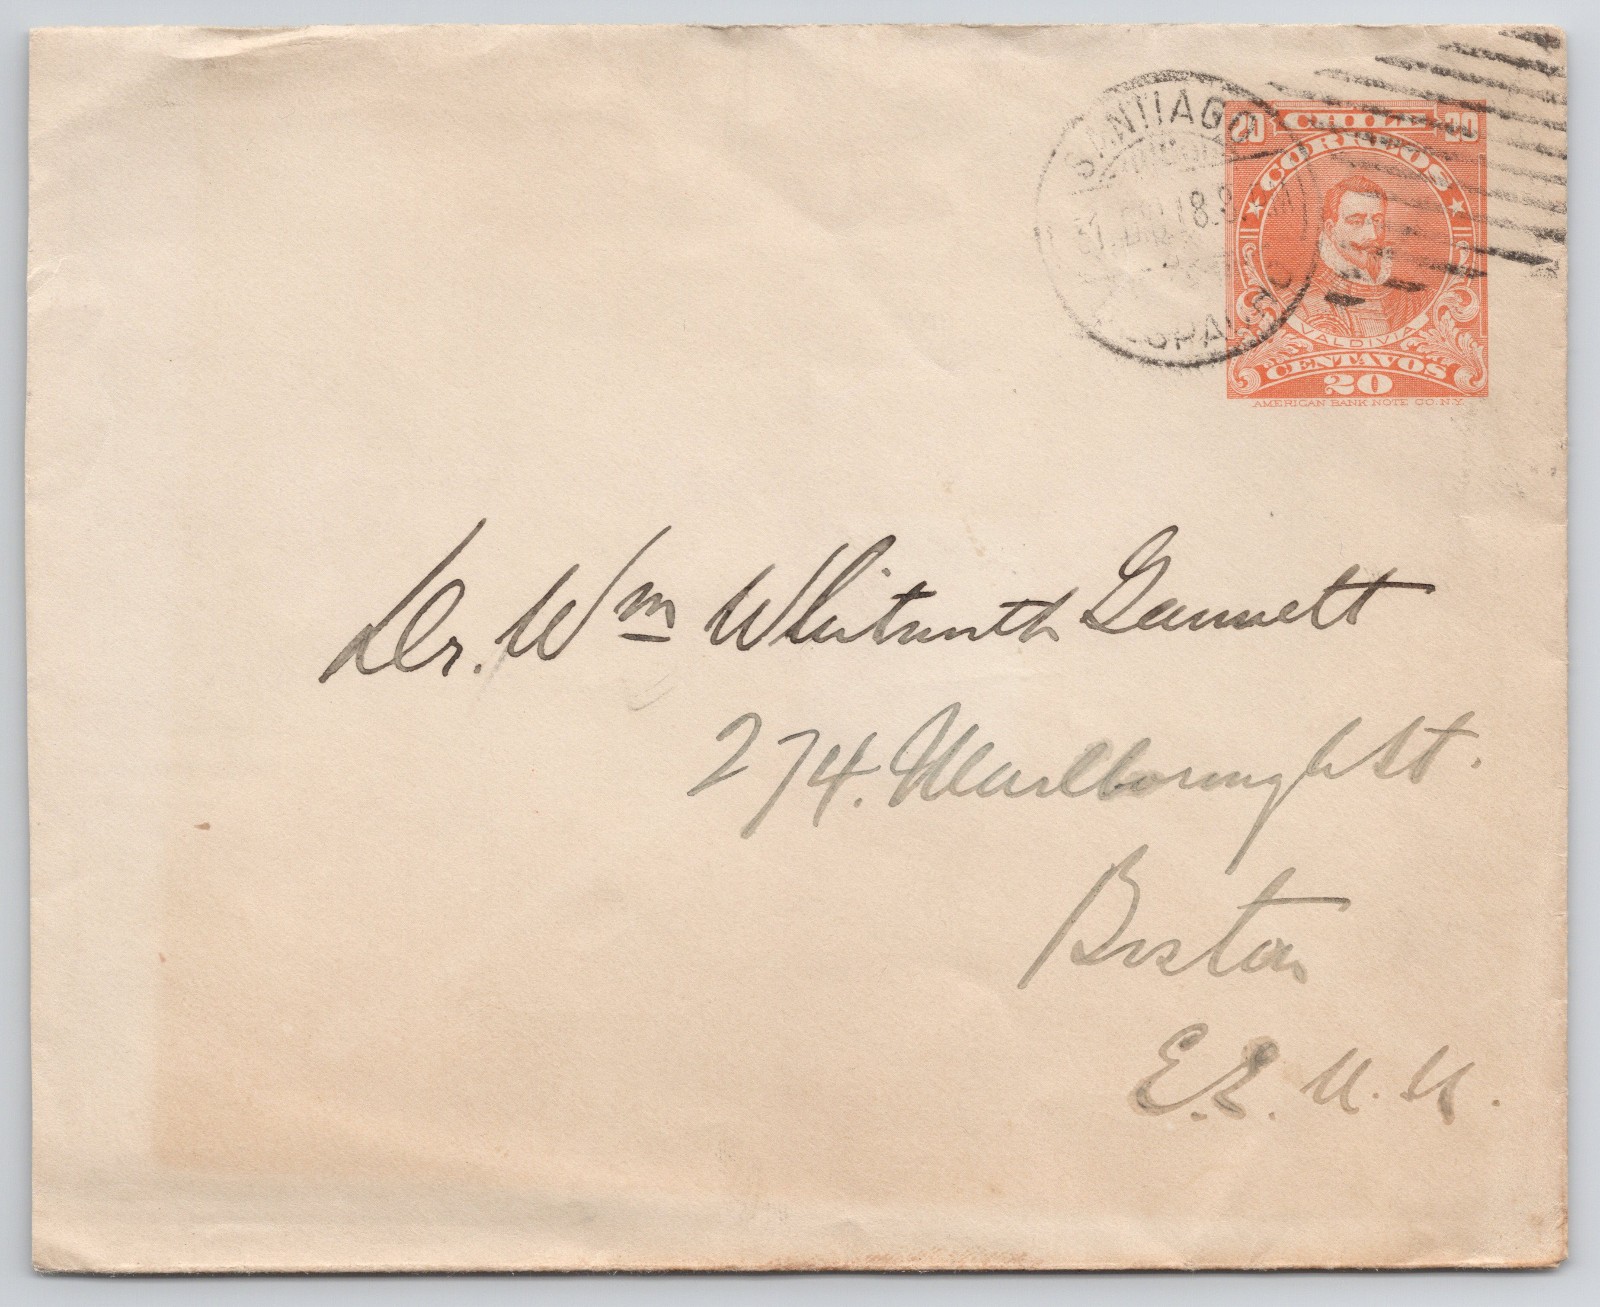 SANTIAGO
31. DIC 18. 8
20 CHILE 20
CORREOS
VALDIVIA
CENTAVOS
20
AMERICAN BANK NOTE CO. N.Y.
Dr. Wm Whitworth Gannett
274. Marlborough St.
Boston
E.E. U.U.